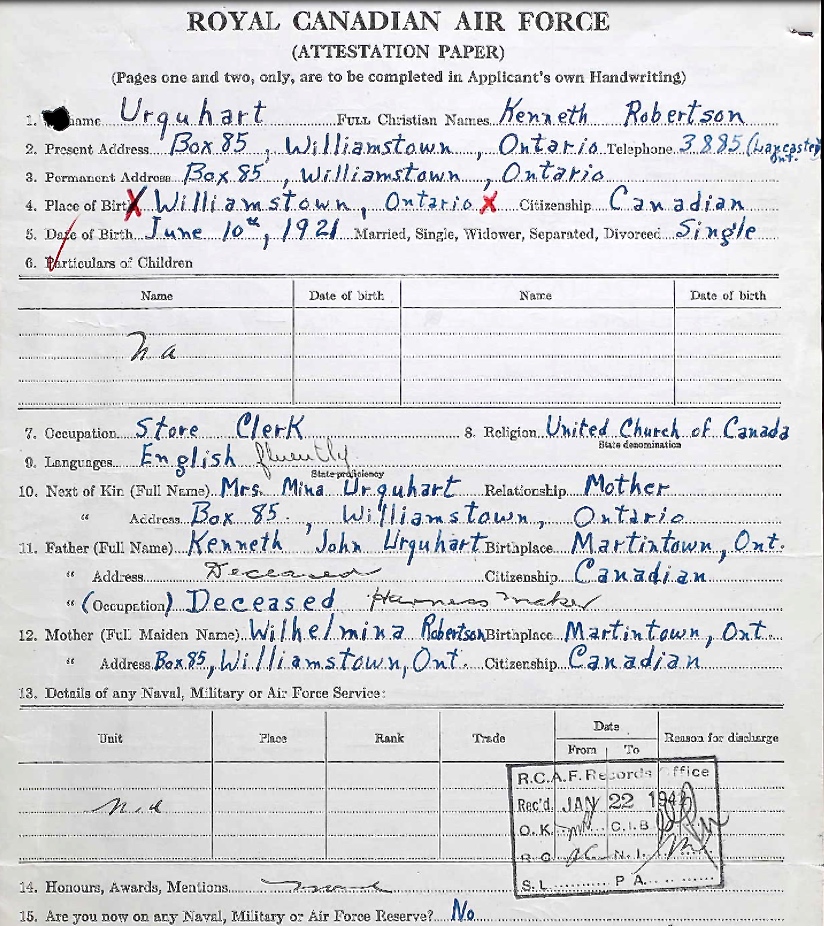 ROYAL CANADIAN AIR FORCE
(ATTESTATION PAPER)
(Pages one and two, only, are to be completed in Applicant's own Handwriting)
1. name Urquhart Full Christian Names Kenneth Robertson
2. Present Address Box 85, Williamstown, Ontario Telephone 3885 (Lancaster, Ont.
3. Permanent Address Box 85, Williamstown, Ontario
4. Place of Birth X Williamstown, Ontario X Citizenship Canadian
5. Date of Birth June 10th, 1921 Married, Single, Widower, Separated, Divorced Single
6. Particulars of Children
Name Date of birth Name Date of birth
na
7. Occupation Store Clerk 8. Religion United Church of Canada
State denomination
9. Languages English fluently
State proficiency
10. Next of Kin (Full Name) Mrs. Mina Urquhart Relationship Mother
" Address Box 85, Williamstown, Ontario
11. Father (Full Name) Kenneth John Urquhart Birthplace Martintown, Ont.
" Address Deceased Citizenship Canadian
" (Occupation) Deceased Harness maker
12. Mother (Full Maiden Name) Wilhelmina Robertson Birthplace Martintown, Ont.
" Address Box 85, Williamstown, Ont. Citizenship Canadian
13. Details of any Naval, Military or Air Force Service:
Unit Place Rank Trade Date Reason for discharge
From To
R.C.A.F. Records Office
Rec'd. JAN 22
O.K. C.I.B
R.C. N.I.
S.L. P.A.
14. Honours, Awards, Mentions
15. Are you now on any Naval, Military or Air Force Reserve? No